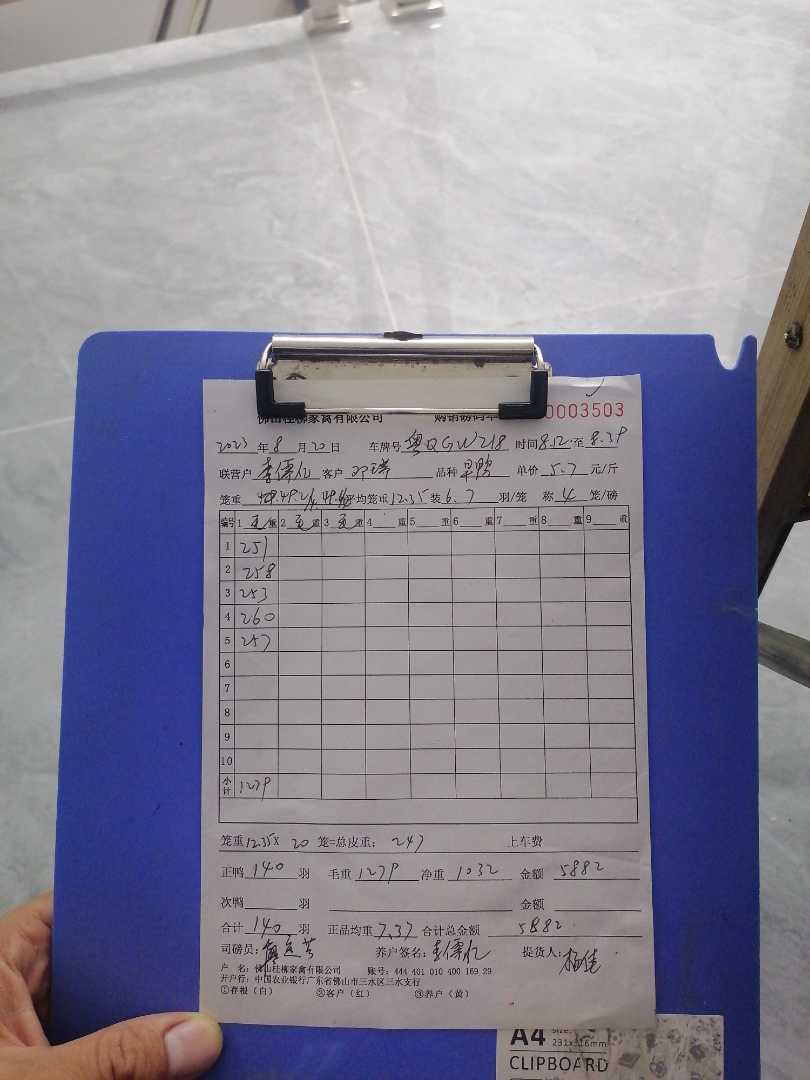 佛山桂柳家禽有限公司 购销磅码单 0003503
2023 年 8 月 20 日 车牌号 粤QGW218 时间 8.12 至 8.39
联营户 李儒亿 客户 邓 品种 旱鸭 单价 5.7 元/斤
笼重 49.49. 平均笼重 12.35 装 6.7 羽/笼 称 4 笼/磅
编号 1 毛 重 2 毛 重 3 毛 重 4 重 5 重 6 重 7 重 8 重 9 重
1 251
2 258
3 253
4 260
5 257
6
7
8
9
10
小计 1279
笼重 12.35 × 20 笼=总皮重: 247 上车费
正鸭 140 羽 毛重 1279 净重 1032 金额 5882
次鸭 羽 金额
合计 140 羽 正品均重 7.37 合计总金额 5882
司磅员: 养户签名: 李儒亿 提货人:
户 名: 佛山桂柳家禽有限公司 账号: 444 401 010 400 169 29
开户行: 中国农业银行广东省佛山市三水区三水支行
①存根(白) ②客户(红) ③养户(黄)
A4 SIZE: 231x316mm
CLIPBOARD